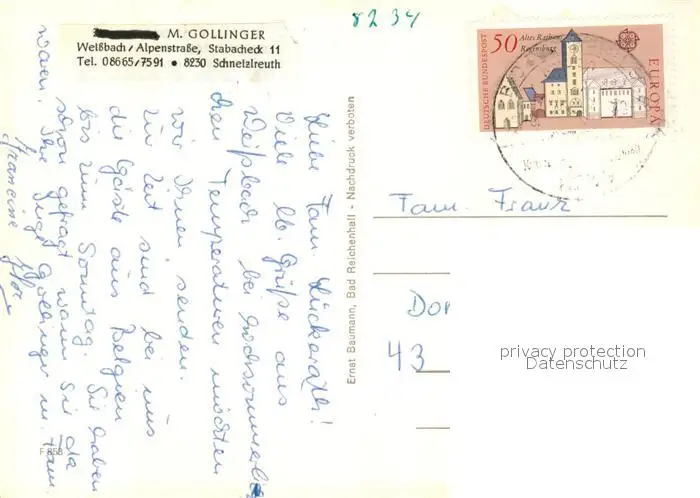 8234
M. GOLLINGER
Weißbach / Alpenstraße, Stabacheck 11
Tel. 08665/7591 • 8230 Schneizlreuth
50 Altes Rathaus
Regensburg
DEUTSCHE BUNDESPOST
EUROPA
Liebe Fam. Lückerath!
Viele lb. Grüße aus
Weißbach bei hochsommerlichen
Temperaturen möchten
wir Ihnen senden.
Zur Zeit sind bei uns
die Gäste aus Belgien
bis zum Sonntag. Sie haben
schon gefragt wann Sie da
waren. Ihre Inge Gollinger m. Fam.
Ernst Baumann, Bad Reichenhall - Nachdruck verboten
F 858
Fam. Franz
Dor
43
privacy protection
Datenschutz